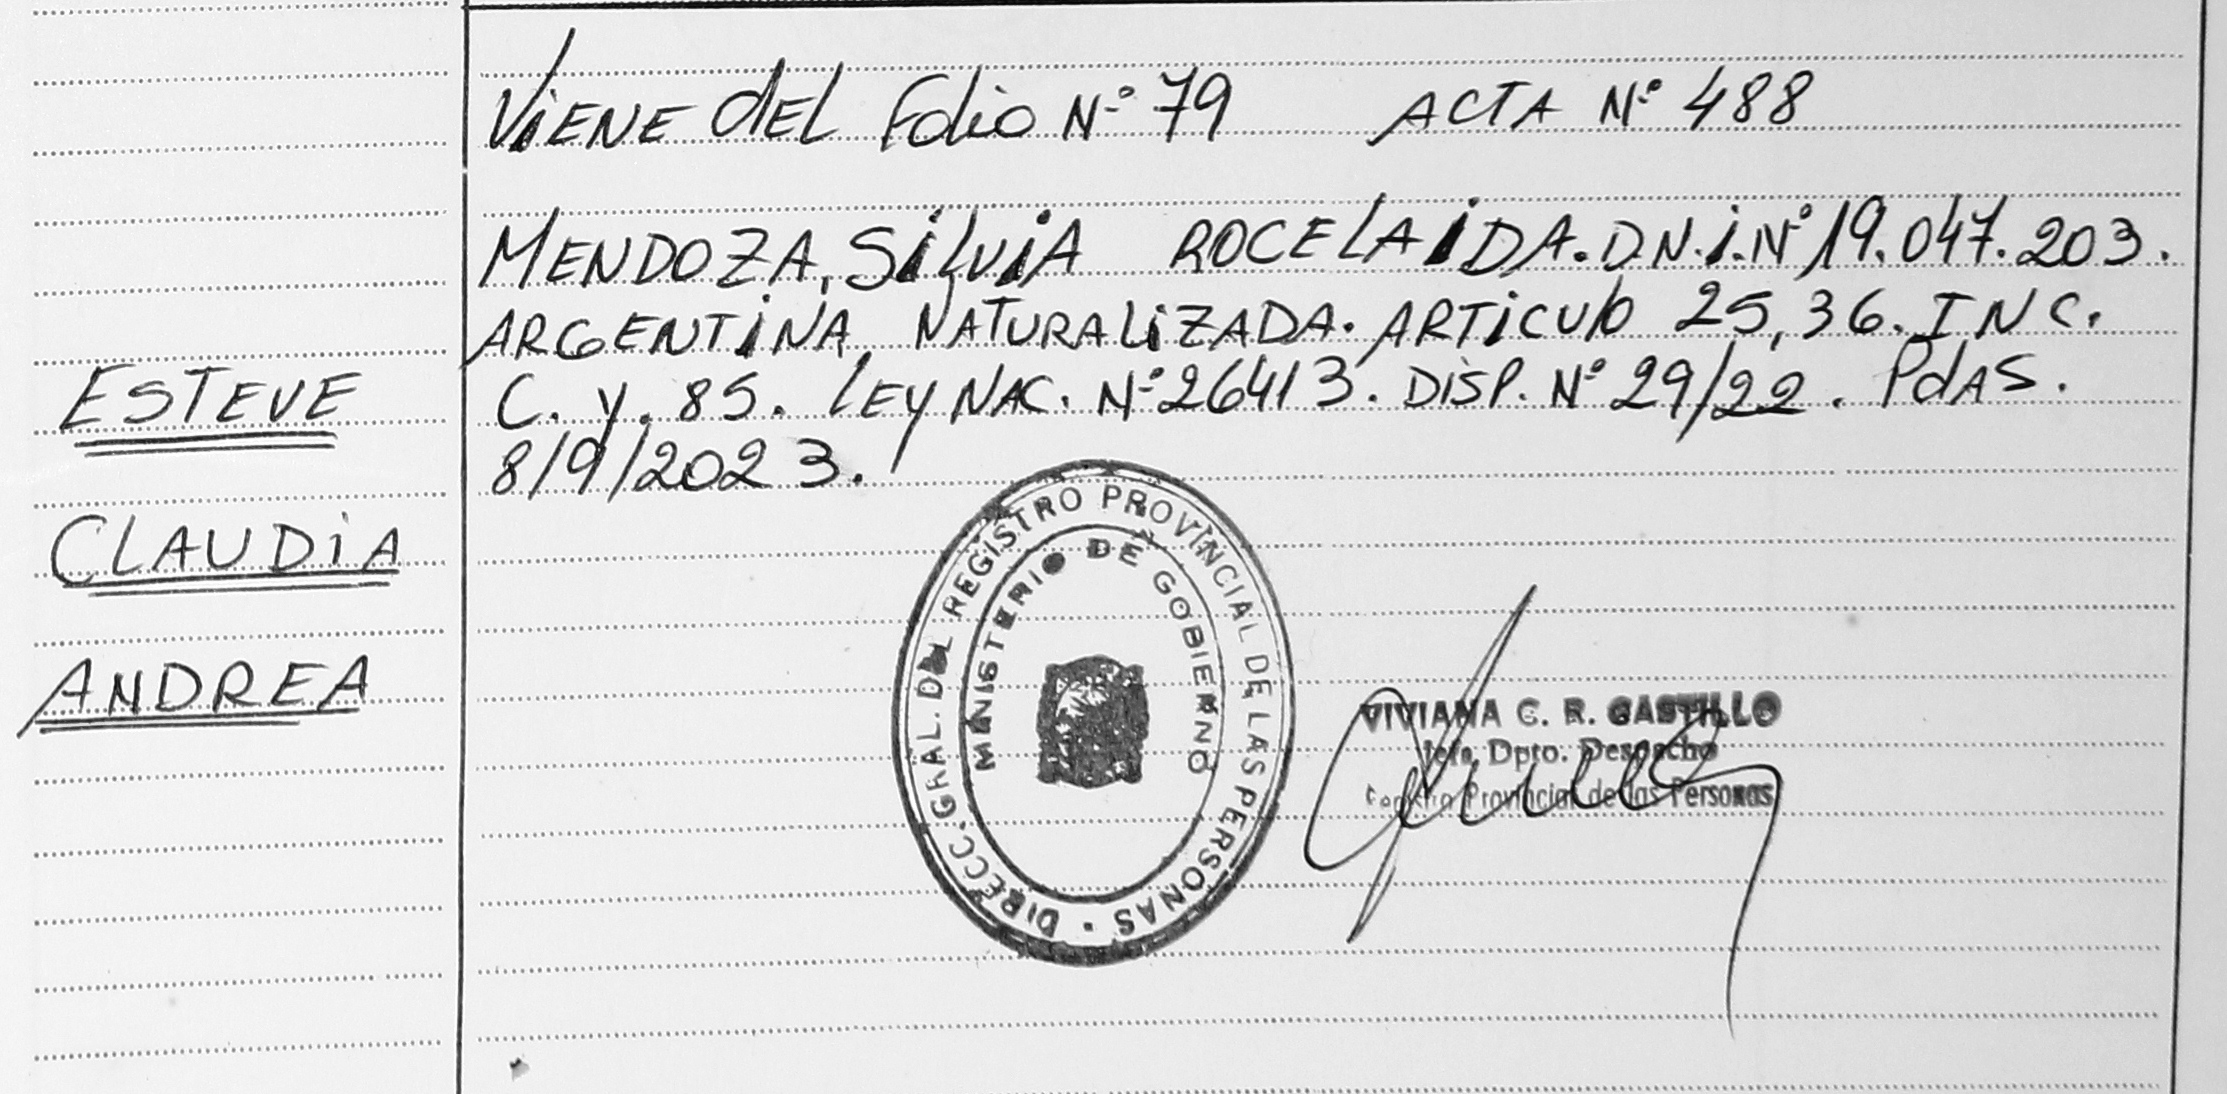 VIENE DEL Folio Nº 79 ACTA Nº 488
MENDOZA, SILVIA ROCELAIDA. D.N.I. Nº 19.047.203.
ARGENTINA, NATURALIZADA. ARTICULO 25, 36. INC.
C. Y. 85. LEY NAC. Nº 26413. DISP. Nº 29/22. PdAS.
8/9/2023.
ESTEVE
CLAUDIA
ANDREA
DIRECC. GRAL. DEL REGISTRO PROVINCIAL DE LAS PERSONAS
MINISTERIO DE GOBIERNO
VIVIANA C. R. CASTILLO
Jefa Dpto. Despacho
Registro Provincial de las Personas